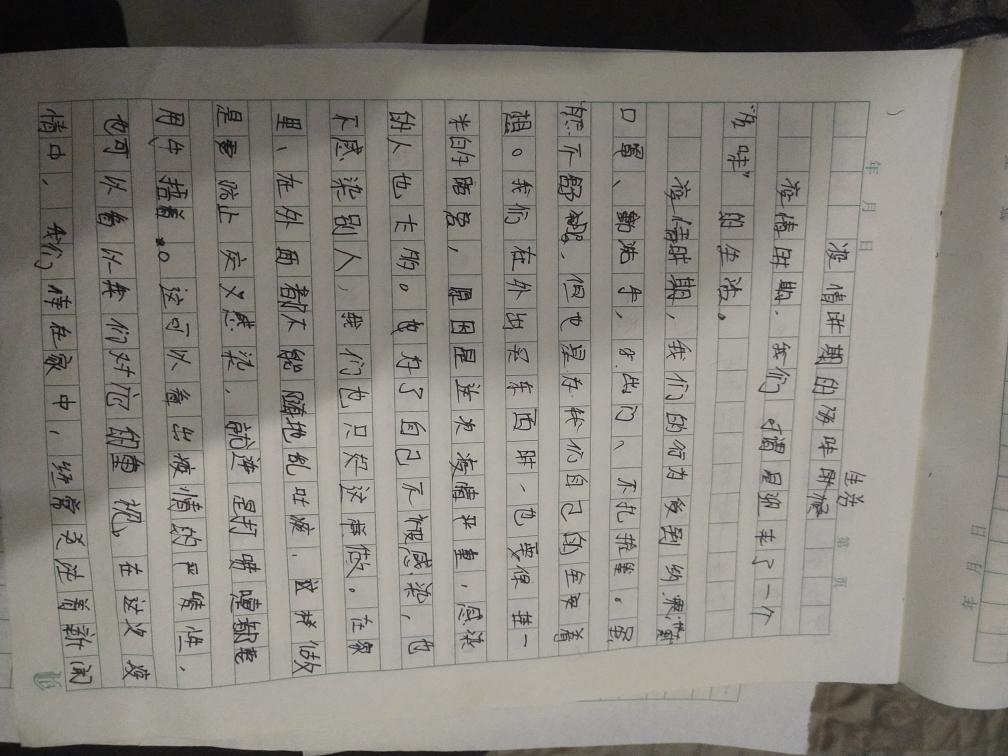 年 月 日
第 页
疫情时期的活味时候
生活
疫情时期，我们可谓是迎来了一个
“活味”的生活。
疫情时期，我们的行为受到约束，戴
口罩、勤洗手，少出门、不扎堆。虽
然不舒服，但也是在我们自己的全安着
想。我们在外出买东西时，也要保持一
米的距离，原因是这次疫情严重，感染
的人也太多。也为了自己不被感染，也
不感染别人，我们也只好这样做。在家
里、在外面都不能随地乱吐痰，这样做
是要防止交叉感染，就连是打喷嚏都要
用手捂着。这可以看出疫情的严峻性，
也可以看出我们对它的重视。在这次疫
情中，我们待在家中，经常关注着新闻